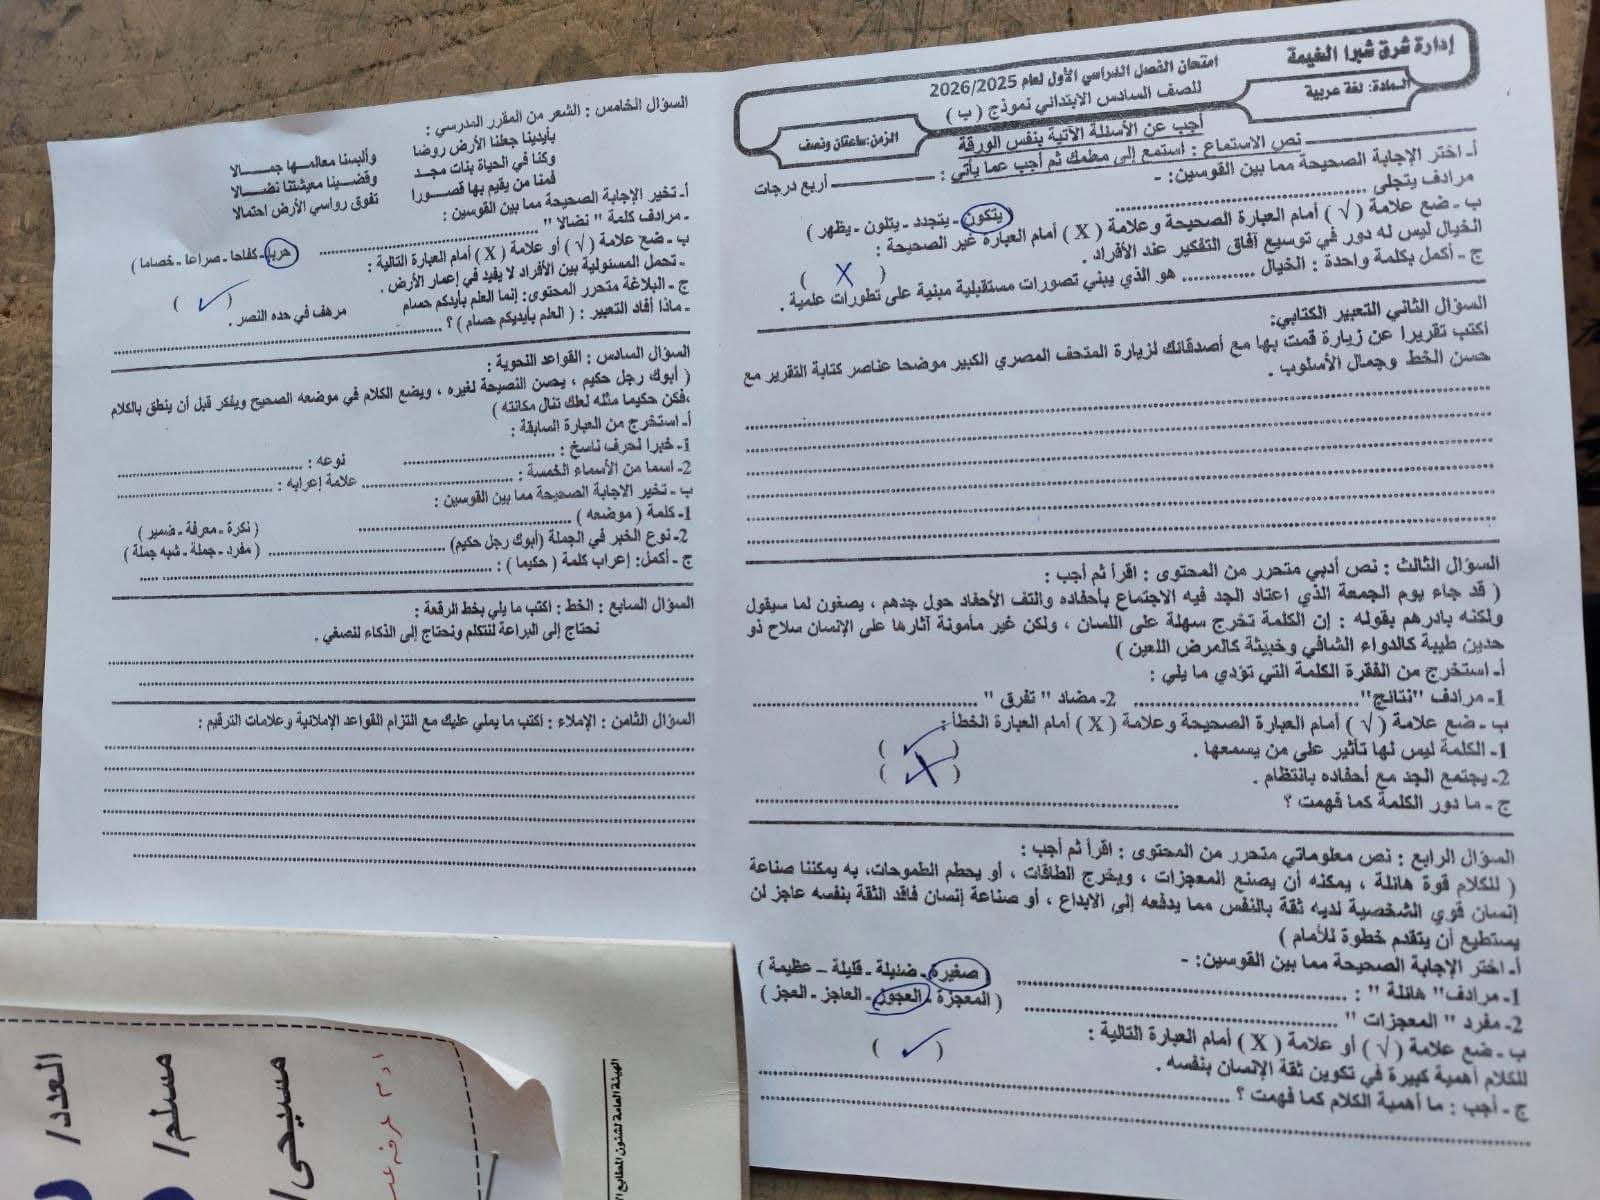 إدارة شرق شبرا الخيمة
امتحان الفصل الدراسي الأول لعام 2026/2025
المادة: لغة عربية
للصف السادس الابتدائي نموذج ( ب )
الزمن: ساعتان ونصف
أجب عن الأسئلة الآتية بنفس الورقة
نص الاستماع : استمع إلى معلمك ثم أجب عما يأتي : ــــــــــــ أربع درجات
أ- اختر الإجابة الصحيحة مما بين القوسين: -
مرادف يتجلى .......................... ( يتكون - يتجدد - يتلون - يظهر )
ب - ضع علامة ( √ ) أمام العبارة الصحيحة وعلامة ( X ) أمام العبارة غير الصحيحة :
الخيال ليس له دور في توسيع آفاق التفكير عند الأفراد . ( X )
ج - أكمل بكلمة واحدة : الخيال ............. هو الذي يبني تصورات مستقبلية مبنية على تطورات علمية .
السؤال الثاني التعبير الكتابي:
اكتب تقريرا عن زيارة قمت بها مع أصدقائك لزيارة المتحف المصري الكبير موضحا عناصر كتابة التقرير مع
حسن الخط وجمال الأسلوب .
السؤال الثالث : نص أدبي متحرر من المحتوى : اقرأ ثم أجب :
( قد جاء يوم الجمعة الذي اعتاد الجد فيه الاجتماع بأحفاده والتف الأحفاد حول جدهم ، يصغون لما سيقول
ولكنه بادرهم بقوله : إن الكلمة تخرج سهلة على اللسان ، ولكن غير مأمونة آثارها على الإنسان سلاح ذو
حدين طيبة كالدواء الشافي وخبيثة كالمرض اللعين )
أ- استخرج من الفقرة الكلمة التي تؤدي ما يلي :
1- مرادف "نتائج".......................... 2- مضاد " تفرق " ..........................
ب - ضع علامة ( √ ) أمام العبارة الصحيحة وعلامة ( X ) أمام العبارة الخطأ :
1- الكلمة ليس لها تأثير على من يسمعها . ( √ )
2- يجتمع الجد مع أحفاده بانتظام . ( X )
ج - ما دور الكلمة كما فهمت ؟ ..........................
السؤال الرابع : نص معلوماتي متحرر من المحتوى : اقرأ ثم أجب :
( للكلام قوة هائلة ، يمكنه أن يصنع المعجزات ، ويخرج الطاقات ، أو يحطم الطموحات، به يمكننا صناعة
إنسان قوي الشخصية لديه ثقة بالنفس مما يدفعه إلى الإبداع ، أو صناعة إنسان فاقد الثقة بنفسه عاجز لن
يستطيع أن يتقدم خطوة للأمام )
أ- اختر الإجابة الصحيحة مما بين القوسين: -
1- مرادف" هائلة " : .......................... ( صغيرة - ضئيلة - قليلة - عظيمة )
2- مفرد " المعجزات " .......................... ( المعجزة - العجوز - العاجز - العجز )
ب - ضع علامة ( √ ) أو علامة ( X ) أمام العبارة التالية :
للكلام أهمية كبيرة في تكوين ثقة الإنسان بنفسه . ( √ )
ج - أجب : ما أهمية الكلام كما فهمت ؟ ..........................
السؤال الخامس : الشعر من المقرر المدرسي :
بأيدينا جعلنا الأرض روضا وألبسنا معالمـــها جمـــالا
وكنا في الحياة بنات مجـد وقضـــينا معيشتنا نضـــالا
فمنا من يقيم بها قصـــورا تفوق رواسي الأرض احتمالا
أ- تخير الإجابة الصحيحة مما بين القوسين :
- مرادف كلمة " نضالا " .......................... ( حربا - كفاحا - صراعا - خصاما )
ب - ضع علامة ( √ ) أو علامة ( X ) أمام العبارة التالية :
- تحمل المسئولية بين الأفراد لا يفيد في إعمار الأرض . ( √ )
ج - البلاغة متحرر المحتوى: إنما العلم بأيدكم حسام مرهف في حده النصر .
- ماذا أفاد التعبير : ( العلم بأيديكم حسام ) ؟ ..........................
السؤال السادس : القواعد النحوية :
( أبوك رجل حكيم ، يحسن النصيحة لغيره ، ويضع الكلام في موضعه الصحيح ويفكر قبل أن ينطق بالكلام
،فكن حكيما مثله لعلك تنال مكانته )
أ- استخرج من العبارة السابقة :
1- خبرا لحرف ناسخ : .......................... نوعه : ..........................
2- اسما من الأسماء الخمسة : .......................... علامة إعرابه : ..........................
ب - تخير الإجابة الصحيحة مما بين القوسين :
1- كلمة ( موضعه ) .......................... ( نكرة - معرفة - ضمير )
2- نوع الخبر في الجملة (أبوك رجل حكيم) .......................... ( مفرد - جملة - شبه جملة )
ج - أكمل: إعراب كلمة ( حكيما ) : ..........................
السؤال السابع : الخط : اكتب ما يلي بخط الرقعة :
نحتاج إلى البراعة لنتكلم ونحتاج إلى الذكاء لنصغي .
السؤال الثامن : الإملاء : اكتب ما يملي عليك مع التزام القواعد الإملائية وعلامات الترقيم :
العدد/
مسلم/
مسيحى/
الهيئة العامة لشئون المطابع